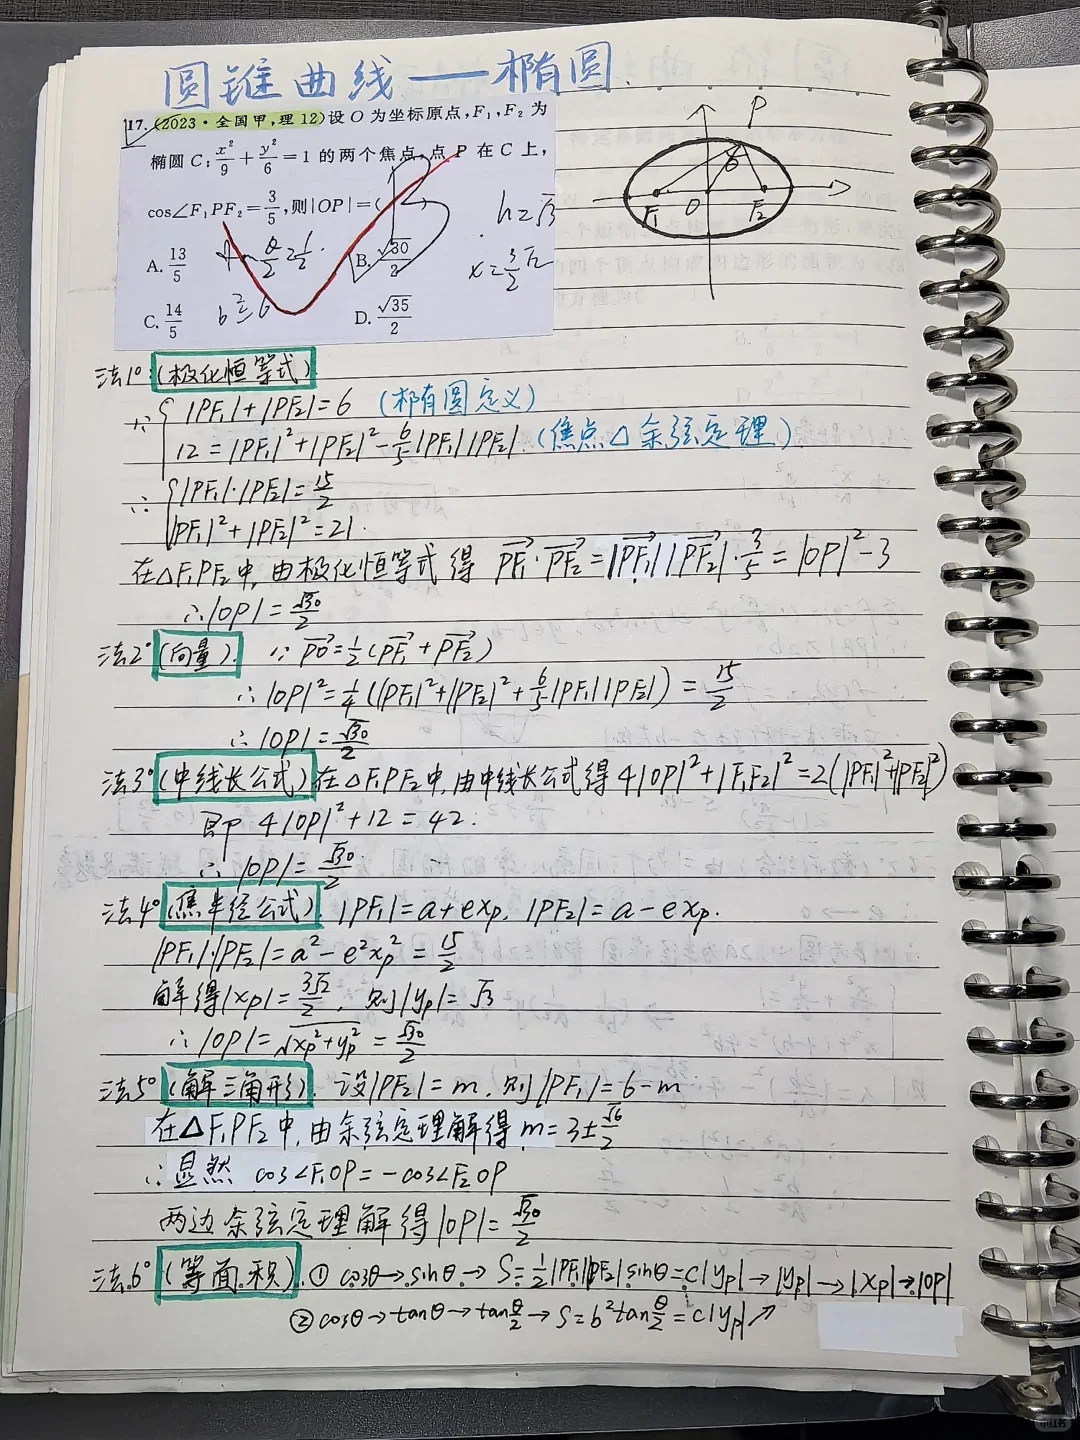 圆锥曲线——椭圆
17. (2023·全国甲,理12)设O为坐标原点,F₁,F₂为
椭圆C: x²/9 + y²/6 = 1 的两个焦点,点P在C上,
cos∠F₁PF₂ = 3/5, 则|OP|=( )
A. 13/5
B. √30/2
C. 14/5
D. √35/2
θ/2 = 1/2
b² = 6
h = √3
x = 3/2 √2
P
θ
F₁ O F₂
法1° (极化恒等式)
∵ { |PF₁|+|PF₂|=6 (椭圆定义)
12=|PF₁|²+|PF₂|²-6/5|PF₁||PF₂|. (焦点△余弦定理)
∴ { |PF₁|·|PF₂|=15/2
|PF₁|²+|PF₂|²=21.
在△F₁PF₂中,由极化恒等式得 PF₁·PF₂=|PF₁||PF₂|·3/5=|OP|²-3
∴|OP|=√30/2
法2° (向量). ∵ PO=1/2(PF₁+PF₂)
∴|OP|²=1/4(|PF₁|²+|PF₂|²+6/5|PF₁||PF₂|)=15/2
∴|OP|=√30/2
法3° (中线长公式) 在△F₁PF₂中,由中线长公式得4|OP|²+|F₁F₂|²=2(|PF₁|²+|PF₂|²)
即 4|OP|²+12=42.
∴|OP|=√30/2
法4° (焦半径公式). |PF₁|=a+exp, |PF₂|=a-exp.
|PF₁|·|PF₂|=a²-e²xp²=15/2
解得|xp|=3√2/2, 则|yp|=√3
∴|OP|=√(xp²+yp²)=√30/2
法5° (解三角形). 设|PF₂|=m, 则|PF₁|=6-m
在△F₁PF₂中,由余弦定理解得m=3±√6/2
∴显然 cos∠F₁OP=-cos∠F₂OP
两边余弦定理解得|OP|=√30/2
法6° (等面积). ①cosθ→sinθ→S=1/2|PF₁||PF₂|sinθ=c|yp|→|yp|→|xp|→|OP|
②cosθ→tanθ→tanθ/2→S=b²tanθ/2=c|yp|↗